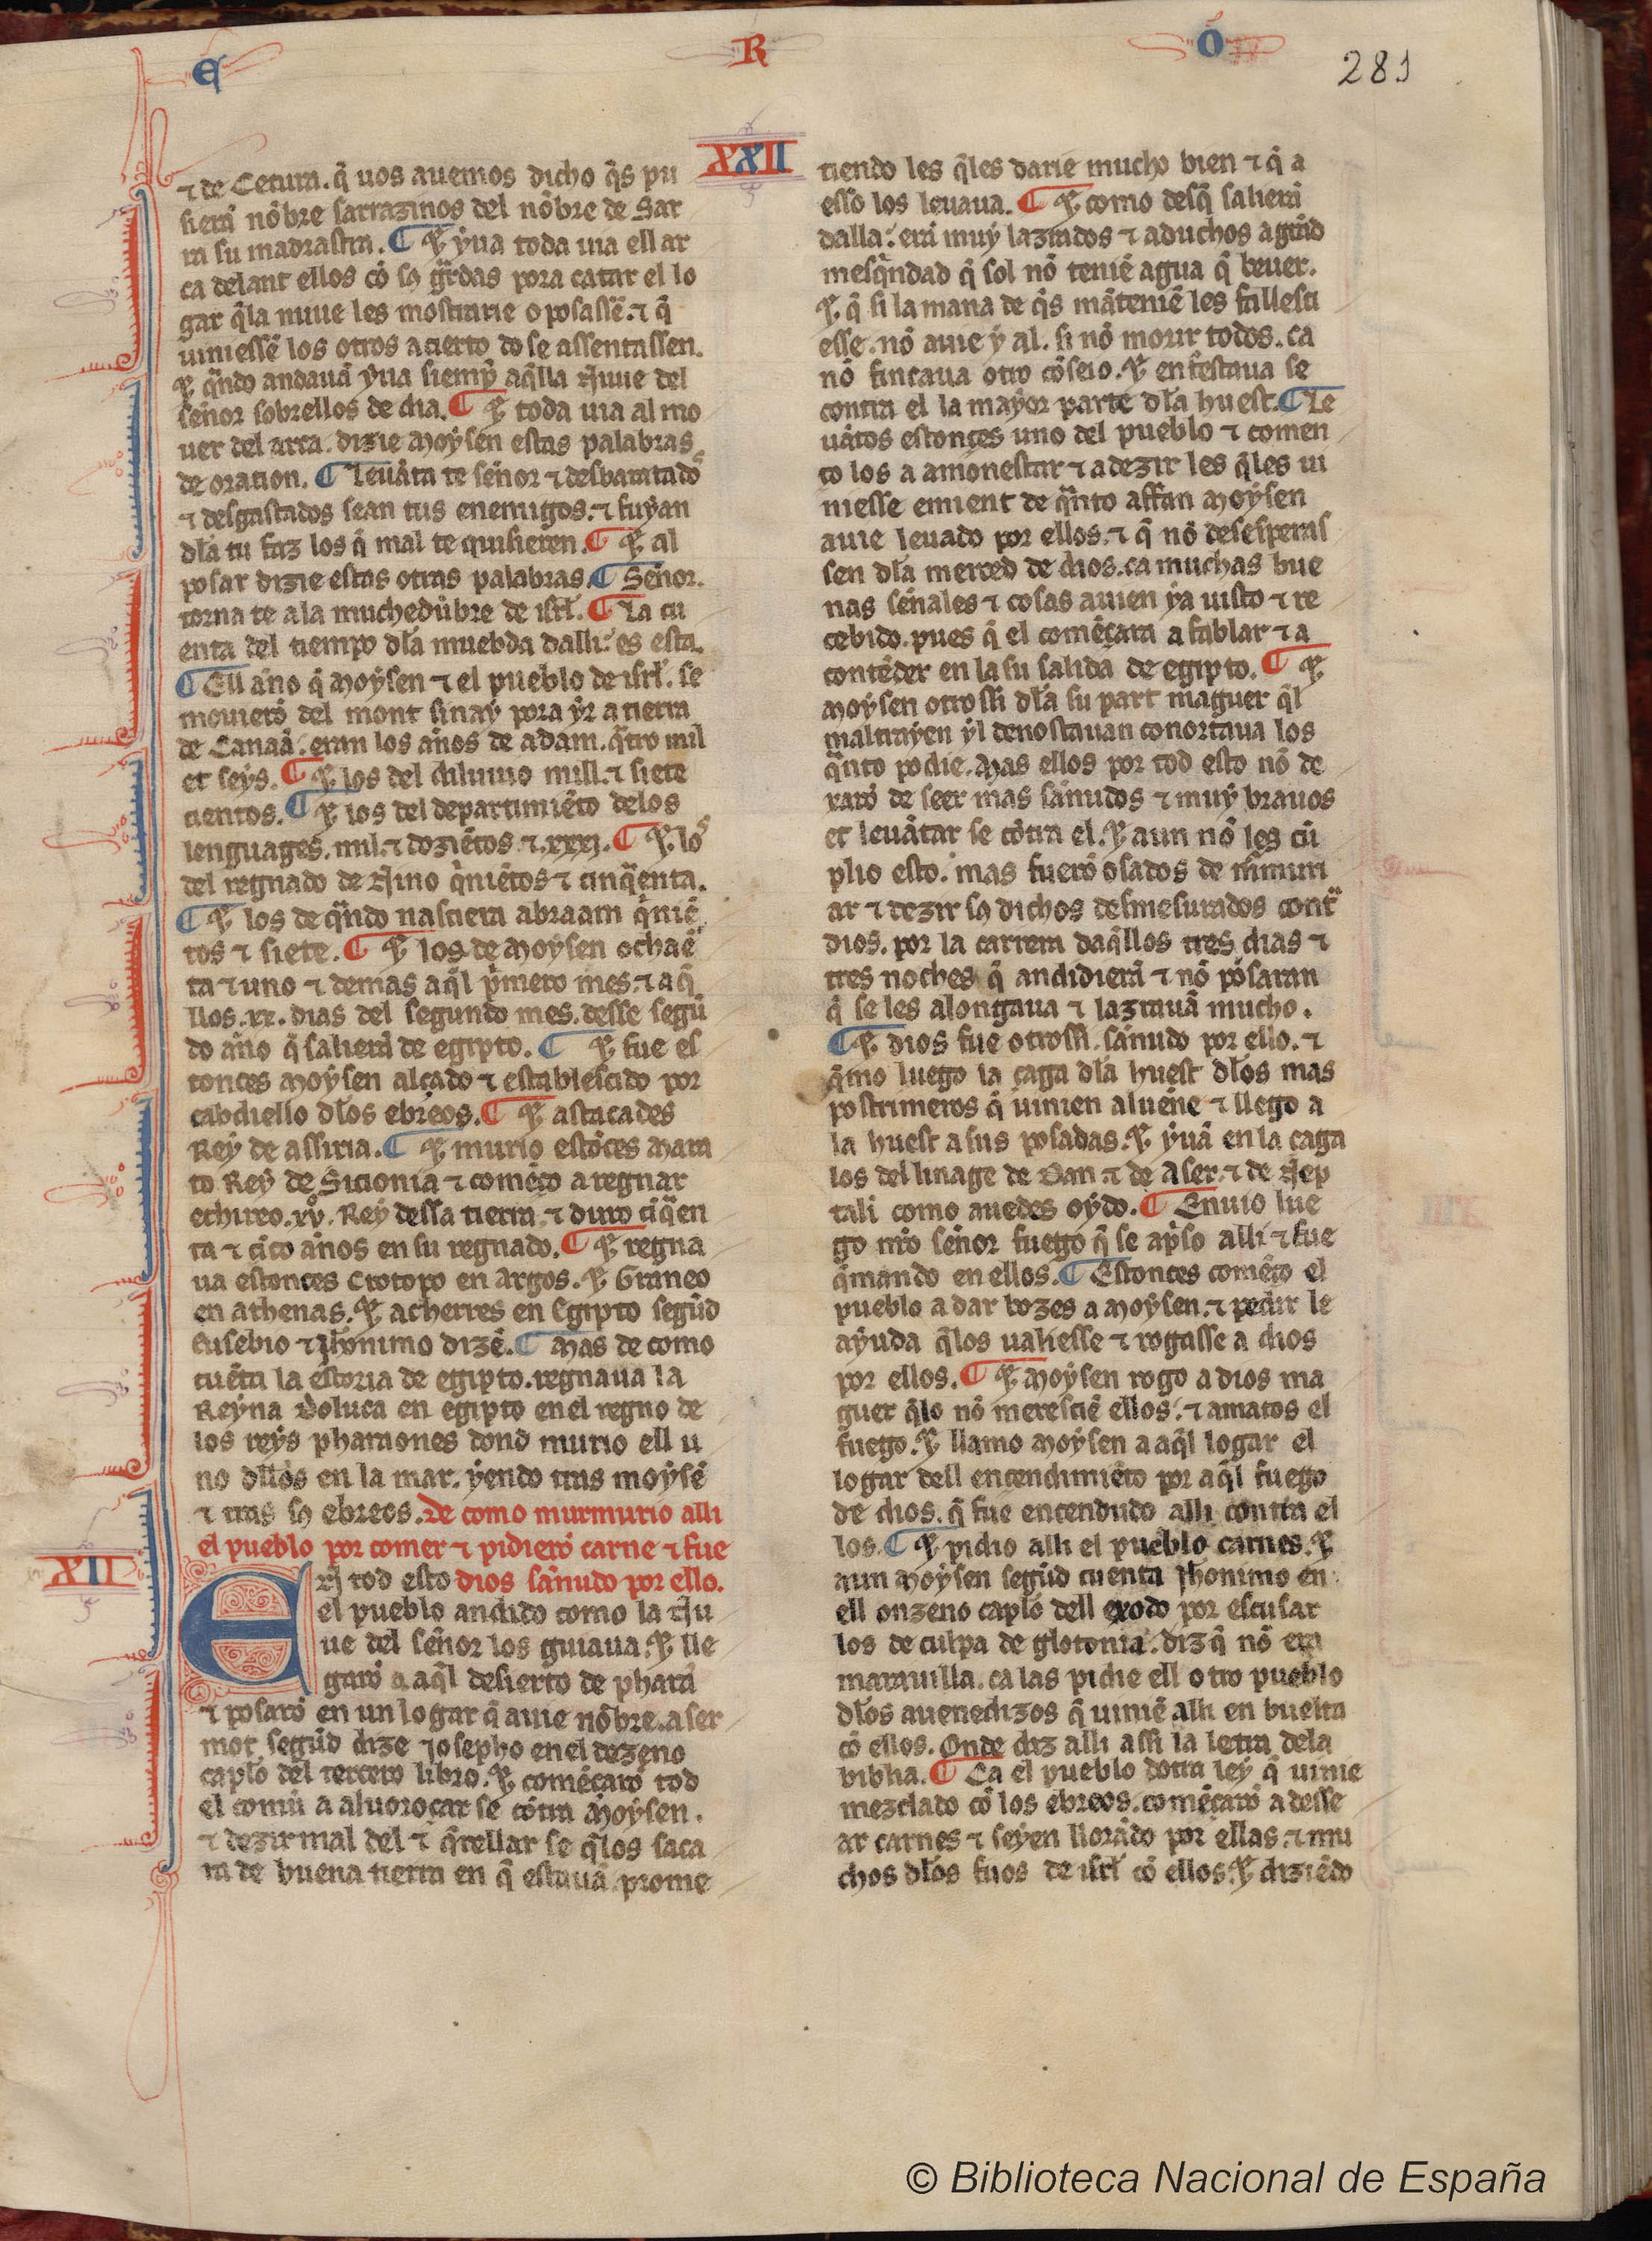 E R O
281
XXII
⁊ de Cetura. q̃ uos auemos dicho q̃s pu
sierã nõbre sarrazinos del nõbre de Sar
ra su madrastra. ¶ ⁊ yua toda uia ell ar
ca delant ellos cõ sꝯ gͣrdas pora catar el lo
gar q̃la nuue les mostrarie o posassẽ. ⁊ q̃
uiniessẽ los otros acierto do se assentassen.
⁊ qͣndo andauã yua siemp̃ aq̃lla Nuue del
sennor sobrellos de dia. ¶ ⁊ toda uia al mo
uer del arca. dizie Moysen estas palabras
de oration. ¶ Leuãta te sẽnor ⁊ desbaratadoˢ
⁊ desgastados sean tus enemigos. ⁊ fuyan
dla tu faz los q̃ mal te quisieren. ¶ ⁊ al
posar dizie estas otras palabras. ¶ Sẽnor.
torna te a la muchedũbre de isrł. ¶ La cu
enta del tiempo dla muebda dalli: es esta.
¶ Ell ãno q̃ Moysen ⁊ el pueblo de isrł. se
mouierõ del mont sinay pora yr a tierra
de Canaã. eran los ãnos de adam. qͣtro mil
et seys. ¶ ⁊ los del diluuio mill. ⁊ siete
cientos. ¶ ⁊ los del departimiẽto delos
lenguages. mil. ⁊ doziẽtos. ⁊. xxxj. ¶ ⁊ loˢ
del regnado de Nino quiniẽtos ⁊ cinqͣenta.
¶ ⁊ los de qͣndo nasciera abraam quiniẽ
tos ⁊ siete. ¶ ⁊ los de Moysen ochaẽ
ta ⁊ uno ⁊ demas aq̃l p̃mero mes. ⁊ aq̃
llos. xx. dias del segundo mes. desse segũ
do ãno q̃ salierã de egipto. ¶ ⁊ fue es
tonces Moysen alçado ⁊ establescido por
cabdiello dlos ebreos. ¶ ⁊ astacades
Rey de assiria. ¶ ⁊ murio estõces Mara
to Rey de Sicionia ⁊ comẽço a regnar
echireo. xvͦ. Rey dessa tierra. ⁊ duro cĩqͣen
ta ⁊ cĩco ãnos en su regnado. ¶ ⁊ regna
ua estonces Crotopo en Argos. ⁊ Graneo
en athenas. ⁊ acherres en Egipto segũd
Eusebio ⁊ Jhonimo dizẽ. ¶ Mas de como
cuẽta la estoria de egipto. regnaua la
Reyna Doluca en egipto en el regno de
los reys pharaones dond murio ell u
no dllos en la mar. yendo tras moysẽ
⁊ tras sꝯ ebreos. De como murmurio alli
el pueblo por comer ⁊ pidierõ carne ⁊ fue
dios sãnudo por ello.
XII
EN tod esto
el pueblo andido como la Nu
ue del sẽnor los guiaua. ⁊ lle
garõ a aq̃l desierto de pharã
⁊ posarõ en un logar q̃ auie nõbre. aser
mot. segũd dize Josepho en el dezeno
caplo del tercero libro. ⁊ comẽçarõ tod
el comũ a aluoroçar se cõtra Moysen.
⁊ dezir mal del ⁊ q̃rellar se q̃los saca
ra de buena tierra en q̃ estauã. prome
tiendo les q̃les darie mucho bien ⁊ q̃ a
esso los leuaua. ¶ ⁊ como desq̃ salierã
dalla: erã muy lazrados ⁊ aduchos a grãd
mesq̃ndad q̃ sol nõ teniẽ agua q̃ beuer.
⁊ q̃ si la mana de q̃s mãteniẽ les fallesci
esse. nõ auie y al. si nõ morir todos. ca
nõ fincaua otro cõseio. ⁊ enfestaua se
contra el la mayor parte dla huest. ¶ Le
uãtos estonces uno del pueblo ⁊ comen
ço los a amonestar ⁊ a dezir les q̃les ui
niesse emient de qͣnto affan Moysen
auie leuado por ellos. ⁊ q̃ nõ desesperas
sen dla merced de dios. ca muchas bue
nas sẽnales ⁊ cosas auien ya uisto ⁊ re
cebido. pues q̃ el comẽçara a fablar ⁊ a
contẽder en la su salida de egipto. ¶ ⁊
Moysen otrossi dla su part maguer q̃l
maltrayen yl denostauan conortaua los
qͣnto podie. Mas ellos por tod esto nõ de
xarõ de seer mas sãnudos ⁊ muy brauos
et leuãtar se cõtra el. ⁊ aun nõ les cũ
plio esto. mas fuerõ osados de m̃muri
ar ⁊ dezir sꝯ dichos desmesurados contͣ
dios. por la carrera daq̃llos tres dias ⁊
tres noches q̃ andidierã ⁊ nõ posaran
q̃ se les alongaua ⁊ lazrauã mucho.
¶ ⁊ dios fue otrossi. sãnudo por ello. ⁊
q̃mo luego la çaga dla huest dlos mas
postrimeros q̃ uinien aluẽne ⁊ llego a
la huest a sus posadas. ⁊ yuã en la çaga
los del linage de Dan. ⁊ de Aser. ⁊ de Nep
tali como auedes oydo. ¶ Enuio lue
go nr̃o sẽnor fuego q̃ se apͥso alli ⁊ fue
q̃mando en ellos. ¶ Estonces comẽço el
pueblo a dar bozes a Moysen. ⁊ pedir le
ayuda q̃los ualiesse ⁊ rogasse a dios
por ellos. ¶ ⁊ Moysen rogo a dios ma
guer q̃lo nõ meresciẽ ellos. ⁊ amatos el
fuego. ⁊ llamo Moysen a aq̃l logar el
logar dell encendimiẽto por aq̃l fuego
de dios. q̃ fue encendudo alli contra el
los. ¶ ⁊ pidio alli el pueblo carnes. ⁊
aun Moysen segũd cuenta Jhonimo en
ell onzeno caplo dell exodo por escusar
los de culpa de glotonia. diz q̃ nõ era
marauilla. ca las pidie ell otro pueblo
dlos auenedizos q̃ uiniẽ alli en buelta
cõ ellos. Onde diz alli assi la letra dela
biblia. ¶ Ca el pueblo dotra ley q̃ uinie
mezclado cõ los ebreos. comẽçarõ a desse
ar carnes ⁊ seyen llorãdo por ellas. ⁊ mu
chos dlos fijos de isrł cõ ellos. ⁊ diziẽdo
© Biblioteca Nacional de España